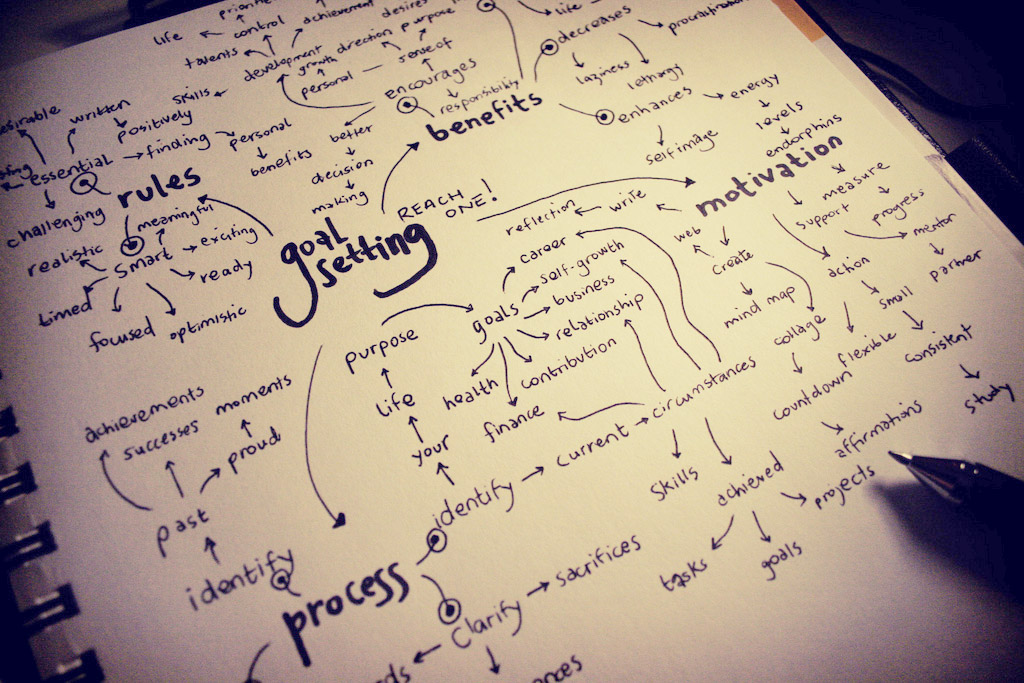 life
control
achievement
desires
talents
development
growth
direction
purpose
personal
sense of
skills
encourages
responsibility
benefits
decreases
life
laziness
lethargy
enhances
energy
levels
endorphins
self image
written
positively
essential
finding
personal
benefits
better
decision
making
rules
challenging
meaningful
realistic
smart
exciting
ready
timed
focused
optimistic
goal
setting
REACH
ONE!
motivation
reflection
write
web
create
mind map
collage
countdown
affirmations
projects
support
measure
progress
mentor
partner
action
small
flexible
consistent
study
career
self-growth
business
relationship
contribution
goals
health
finance
purpose
life
your
identify
current
circumstances
skills
achieved
tasks
goals
achievements
successes
moments
proud
past
identify
process
clarify
sacrifices